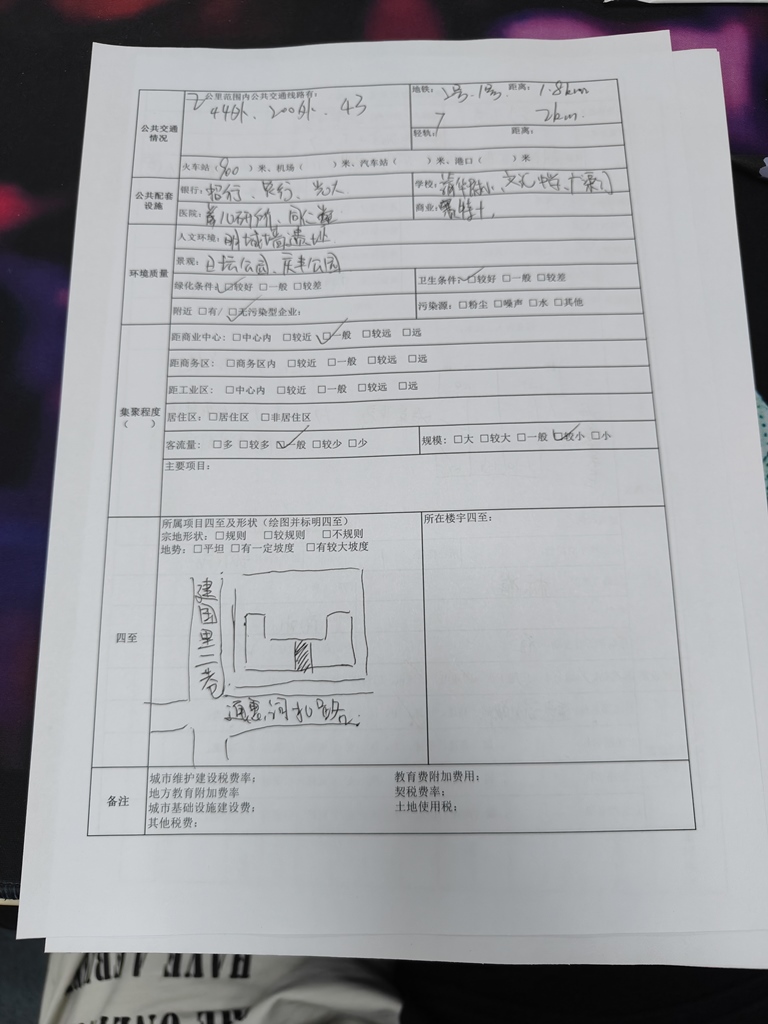 公共交通情况
2公里范围内公共交通线路有:
44外、200外、43
地铁: 2号、1号. 距离: 1.8km
2km.
轻轨:/ 距离:
火车站(900 )米、机场( )米、汽车站( )米、港口( )米
公共配套设施
银行:招行、 光大
学校:
医院: 同仁堂
商业:
环境质量
人文环境:明城墙遗址
景观:日坛公园、庆丰公园
绿化条件:☑较好 □一般 □较差
卫生条件:☑较好 □一般 □较差
附近 □有/ ☑无污染型企业:
污染源:□粉尘 □噪声 □水 □其他
集聚程度
( )
距商业中心:□中心内 □较近 ☑一般 □较远 □远
距商务区: □商务区内 □较近 □一般 □较远 □远
距工业区: □中心内 □较近 □一般 □较远 □远
居住区:□居住区 □非居住区
客流量: □多 □较多 ☑一般 □较少 □少
规模:□大 □较大 □一般 ☑较小 □小
主要项目:
四至
所属项目四至及形状(绘图并标明四至)
宗地形状:□规则 □较规则 □不规则
地势:□平坦 □有一定坡度 □有较大坡度
所在楼宇四至:
建国里二巷
通惠河北路
备注
城市维护建设税费率:
教育费附加费用:
地方教育附加费率
契税费率:
城市基础设施建设费:
土地使用税:
其他税费: